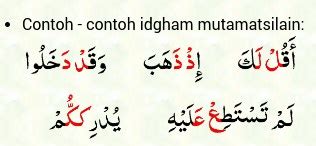 • Contoh - contoh idgham mutamatsilain:
أَقُلْ لَكَ إِذْ ذَهَبَ وَقَدْ دَخَلُوا
لَمْ تَسْتَطِعْ عَلَيْهِ يُدْرِككُّمْ